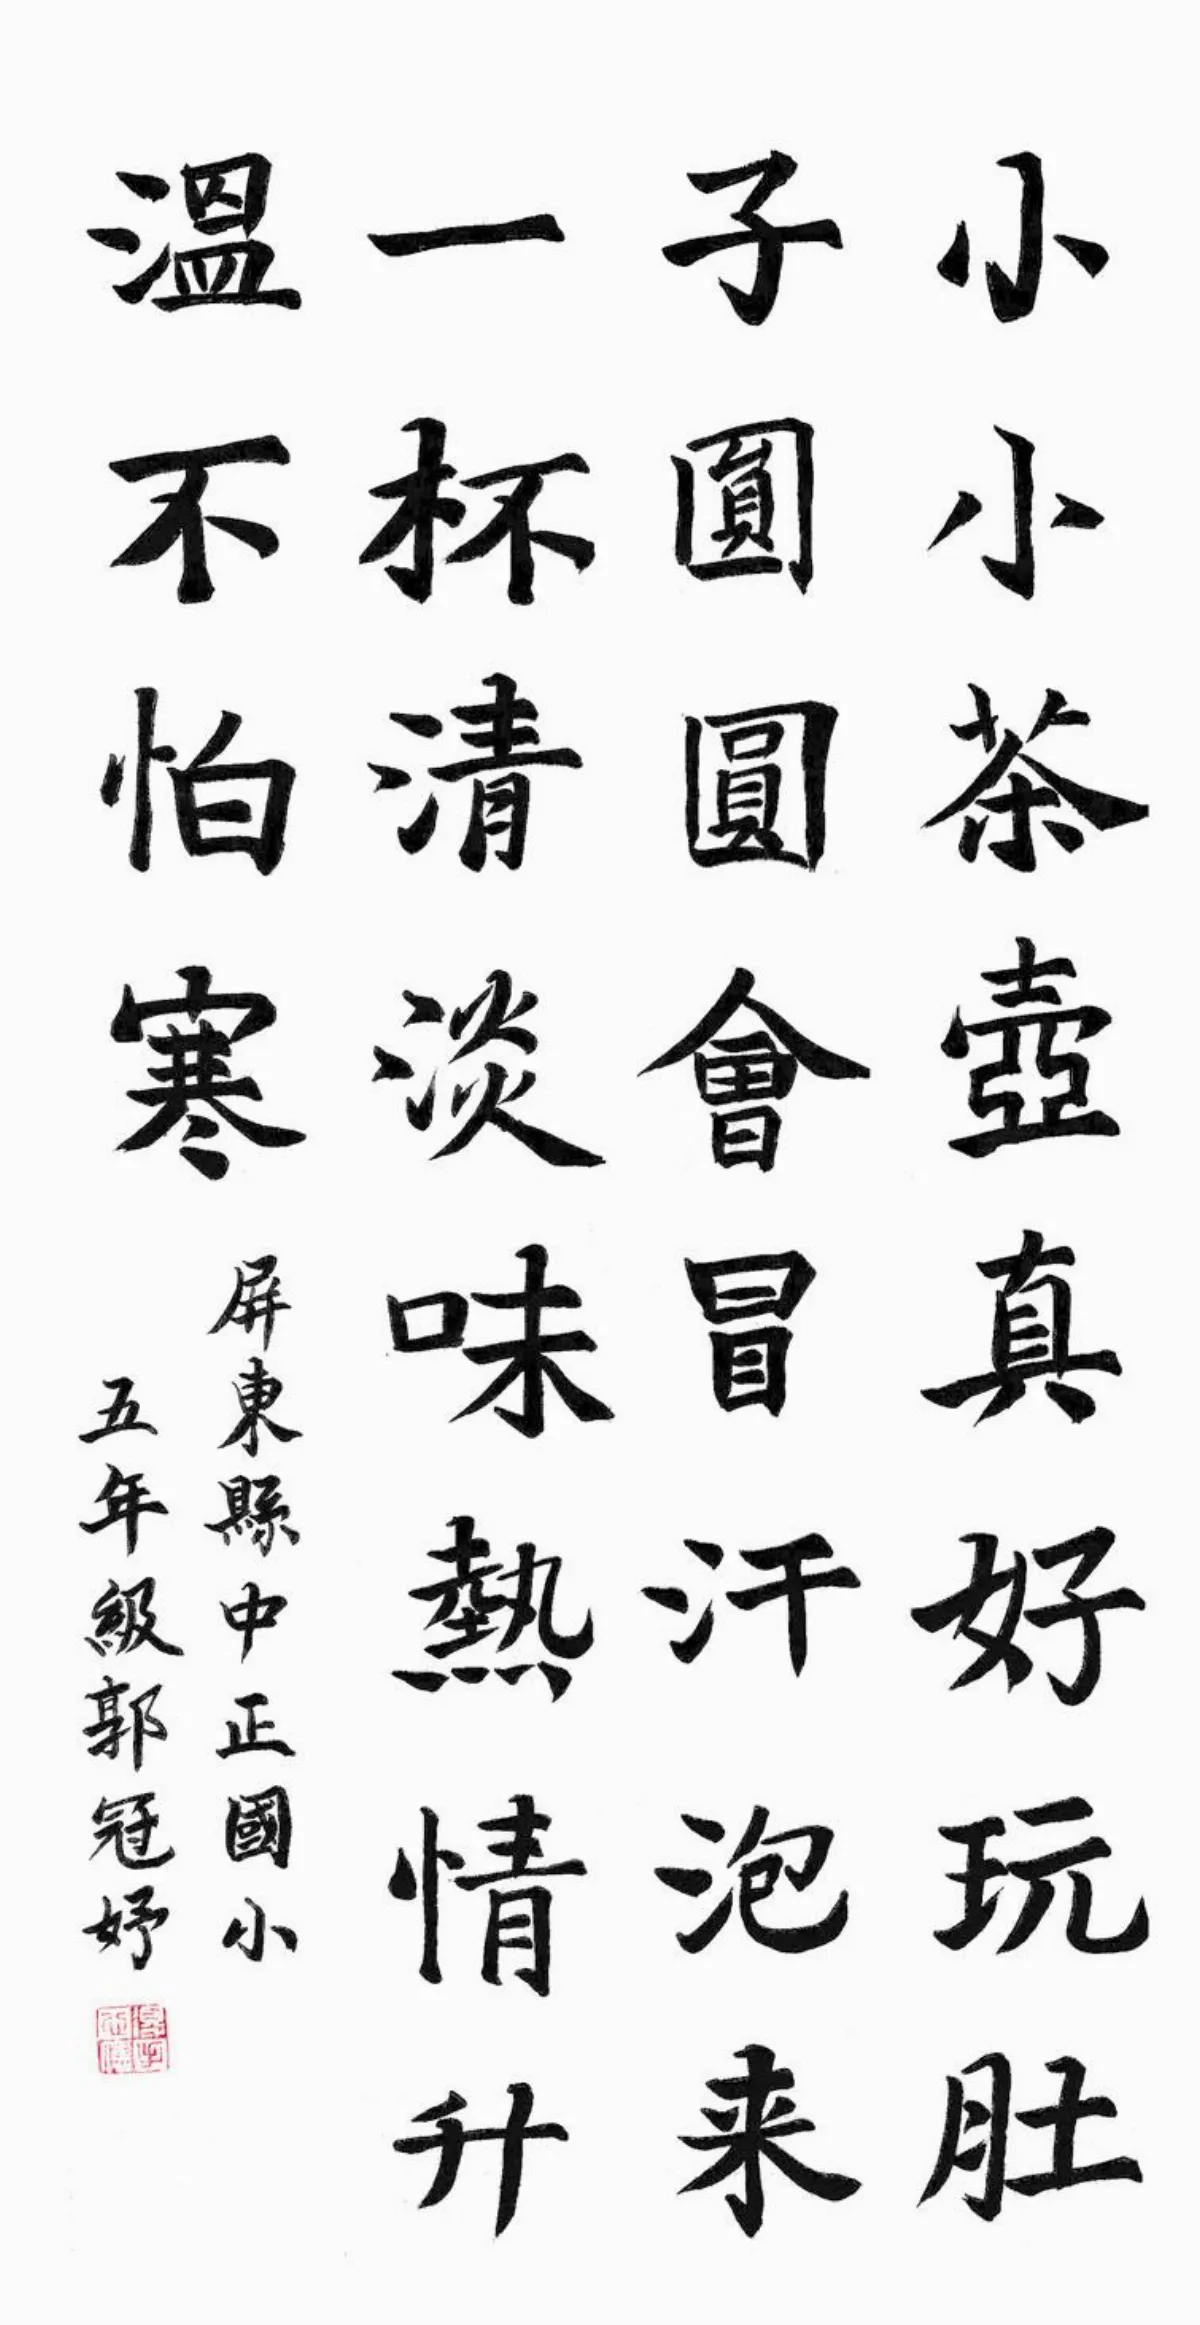 小小茶壺真好玩肚
子圓圓會冒汗泡来
一杯清淡味熱情升
溫不怕寒
屏東縣中正國小
五年級郭冠妤